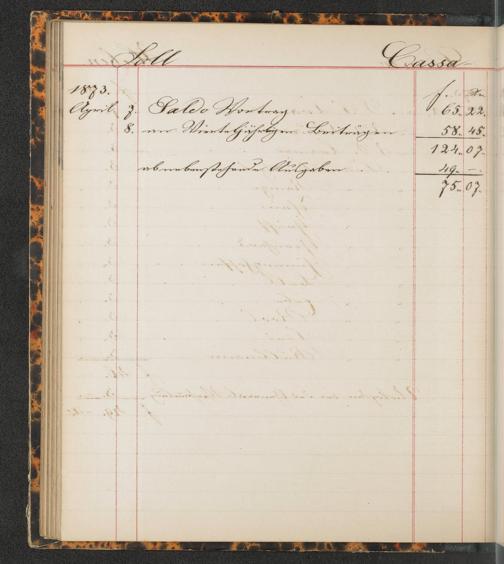 Soll Cassa
1873. f. x.
April 7. Saldo Vortrag 65. 22.
8. an Vierteljährigen Beiträgen 58. 45.
124. 07.
ab nebenstehende Ausgaben 49. –.
75. 07.